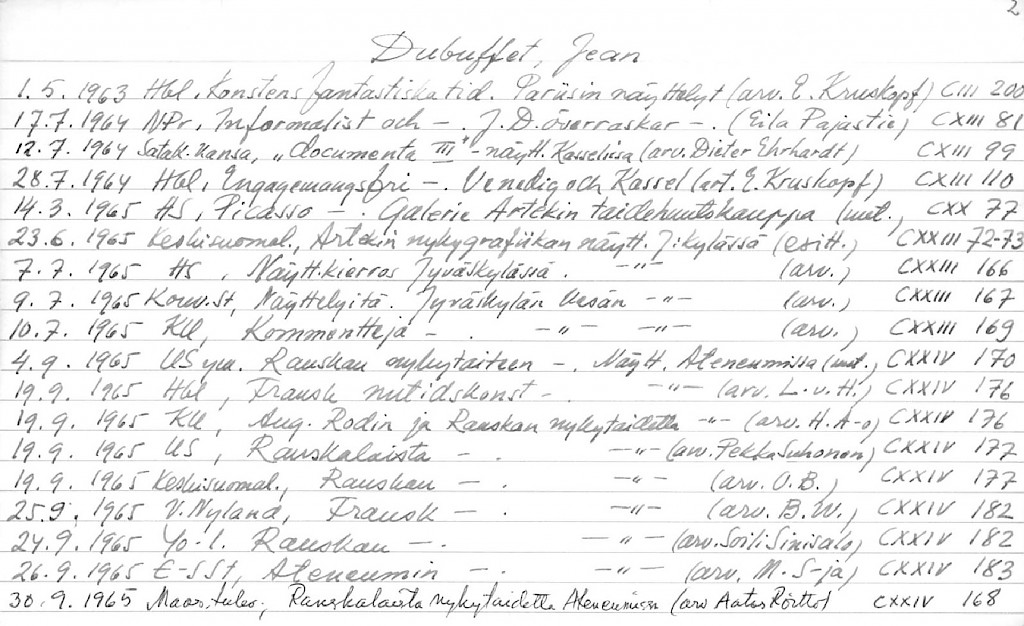 2
Dubuffet, Jean
1.5.1963 Hbl. Konstens fantastiska tid. Pariisin näyttelyt (arv. E. Kruskopf) CIII 200
17.7.1964 NPr, Informalist och —. J.D. överraskar —. (Eila Pajastie) CXIII 81
12.7.1964 Satak. Kansa, "documenta III" -näytt. Kasselissa (arv. Dieter Ehrhardt) CXIII 99
28.7.1964 Hbl, Engagemangsfri —. Venedig och Kassel (art. E. Kruskopf) CXIII 110
14.3.1965 HS, Picasso —. Galerie Artekin taidehuutokauppa (uut., CXX 77
23.6.1965 Keskisuomal., Artekin nykygrafiikan näytt. J:kylässä (esitt.) CXXIII 72-73
7.7.1965 HS, Näytt.kierros Jyväskylässä. —"— (arv.) CXXIII 166
9.7.1965 Kouv.St, Näyttelyitä. Jyväskylän Kesän —"— (arv.) CXXIII 167
10.7.1965 KU, Kommentteja —. —"— —"— (arv.) CXXIII 169
4.9.1965 US ym. Ranskan nykytaiteen —. Näytt. Ateneumissa (uut., CXXIV 170
19.9.1965 Hbl, Fransk nutidskonst —. —"— (arv. L.v.H.) CXXIV 176
19.9.1965 KU, Aug. Rodin ja Ranskan nykytaidetta —"— (arv. H.A-o) CXXIV 176
19.9.1965 US, Ranskalaista —. —"— (arv. Pekka Suhonen) CXXIV 177
19.9.1965 Keskisuomal., Ranskan —. —"— (arv. O.B.) CXXIV 177
25.9.1965 V.Nyland, Fransk —. —"— (arv. B.W.) CXXIV 182
24.9.1965 Yo-l. Ranskan —. —"— (arv. Soili Sinisalo) CXXIV 182
26.9.1965 E-SSt, Ateneumin —. —"— (arv. M.S-ja) CXXIV 183
30.9.1965 Maas. tulev., Ranskalaista nykytaidetta Ateneumissa (arv Aatos CXXIV 168